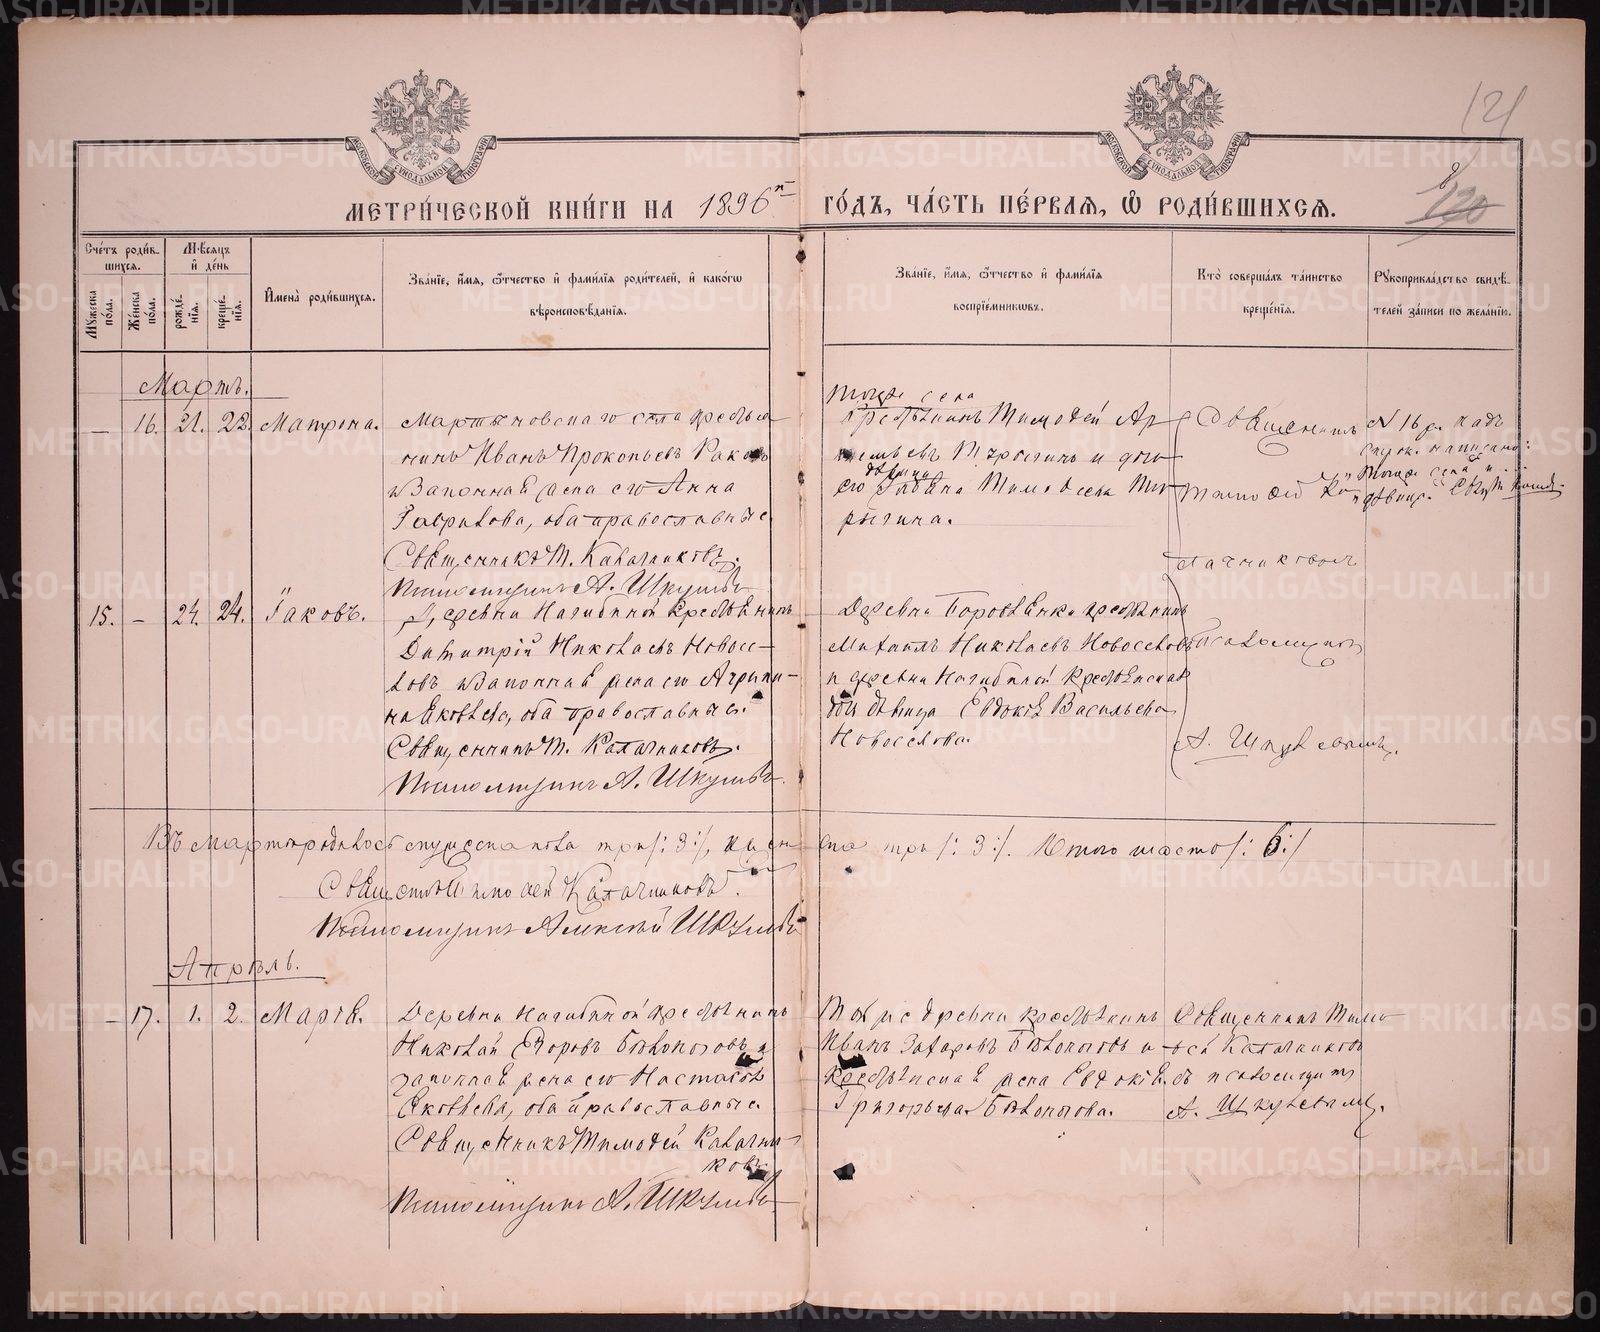 МЕТРИ́ЧЕСКОЙ КНИ́ГИ НА 1896 й
ГО́ДЪ, ЧА́СТЬ ПЕ́РВАЯ, Ѡ РОДИ́ВШИХСЯ.
121
120
Сче́тъ роди́в-
шихся.
Мꙋ́жеска по́ла.
Же́нска по́ла.
Мѣ́сяцъ
и҆ де́нь
рожде́нїя.
креще́нїя.
И҆мена̀ роди́вшихся.
Зва́нїе, и҆́мя, ѻ҆́тчество и҆ фами́лїя роди́телей, и҆ како́гѡ
вѣроисповѣ́данїя.
Зва́нїе, и҆́мя, ѻ҆́тчество и҆ фами́лїя
воспрїе́мникѡвъ.
Кто̀ соверша́лъ та́инство
креще́нїя.
Рꙋкоприкла́дство свидѣ́-
телей за́писи по жела́нїю.
Мартъ.
— 16. 21. 22. Матрона.
Мартыновскаго села крестья-
нинъ Иванъ Прокопьевъ
и законная жена его Анна
Гаврилова, оба православные.
Священникъ Т. Калачниковъ.
Псаломщикъ А. Шкулевъ
Тогоже села
крестьянинъ Тимофей Ар
и дочь
его девица Тимофеева
Священникъ
Тимофей Ка-
лачниковъ
Псаломщикъ
А. Шкулевымъ.
N 16 р. надъ
строк. написано:
"Тогоже села" и
"девица".
15. — 24. 24. Іаковъ.
Деревни Нагибиной крестьянинъ
Димитрій Николаевъ Новосе-
ловъ и законная жена его Агрипи-
на Яковлева, оба православные.
Священникъ Т. Калачниковъ.
Псаломщикъ А. Шкулевъ.
Деревни крестьянинъ
Михаилъ Николаевъ Новоселовъ
и деревни Нагибиной крестьянская
девица Евдокія Васильева
Новоселова.
Въ Марте родилось мужеска пола три /:3:/, женска три /:3:/. Итого шесть /:6:/
Священникъ Тимофей Калачниковъ.
Псаломщикъ Алексей Шкулевъ
Апрѣль.
— 17. 1. 2. Марія.
Деревни Нагибиной крестьянинъ
Николай Егоровъ Белоноговъ и
законная жена его Настасія
Яковлева, оба православные.
Священникъ Тимофей Калачни-
ковъ.
Псаломщикъ А. Шкулевъ
Тойже деревни крестьянинъ
Иванъ Захаровъ Белоноговъ и
крестьянская жена Евдокія
Григорьева Белоногова.
Священникъ Тимо-
фей Калачниковъ
съ псаломщик
А. Шкулевымъ.
METRIKI.GASO-URAL.RU